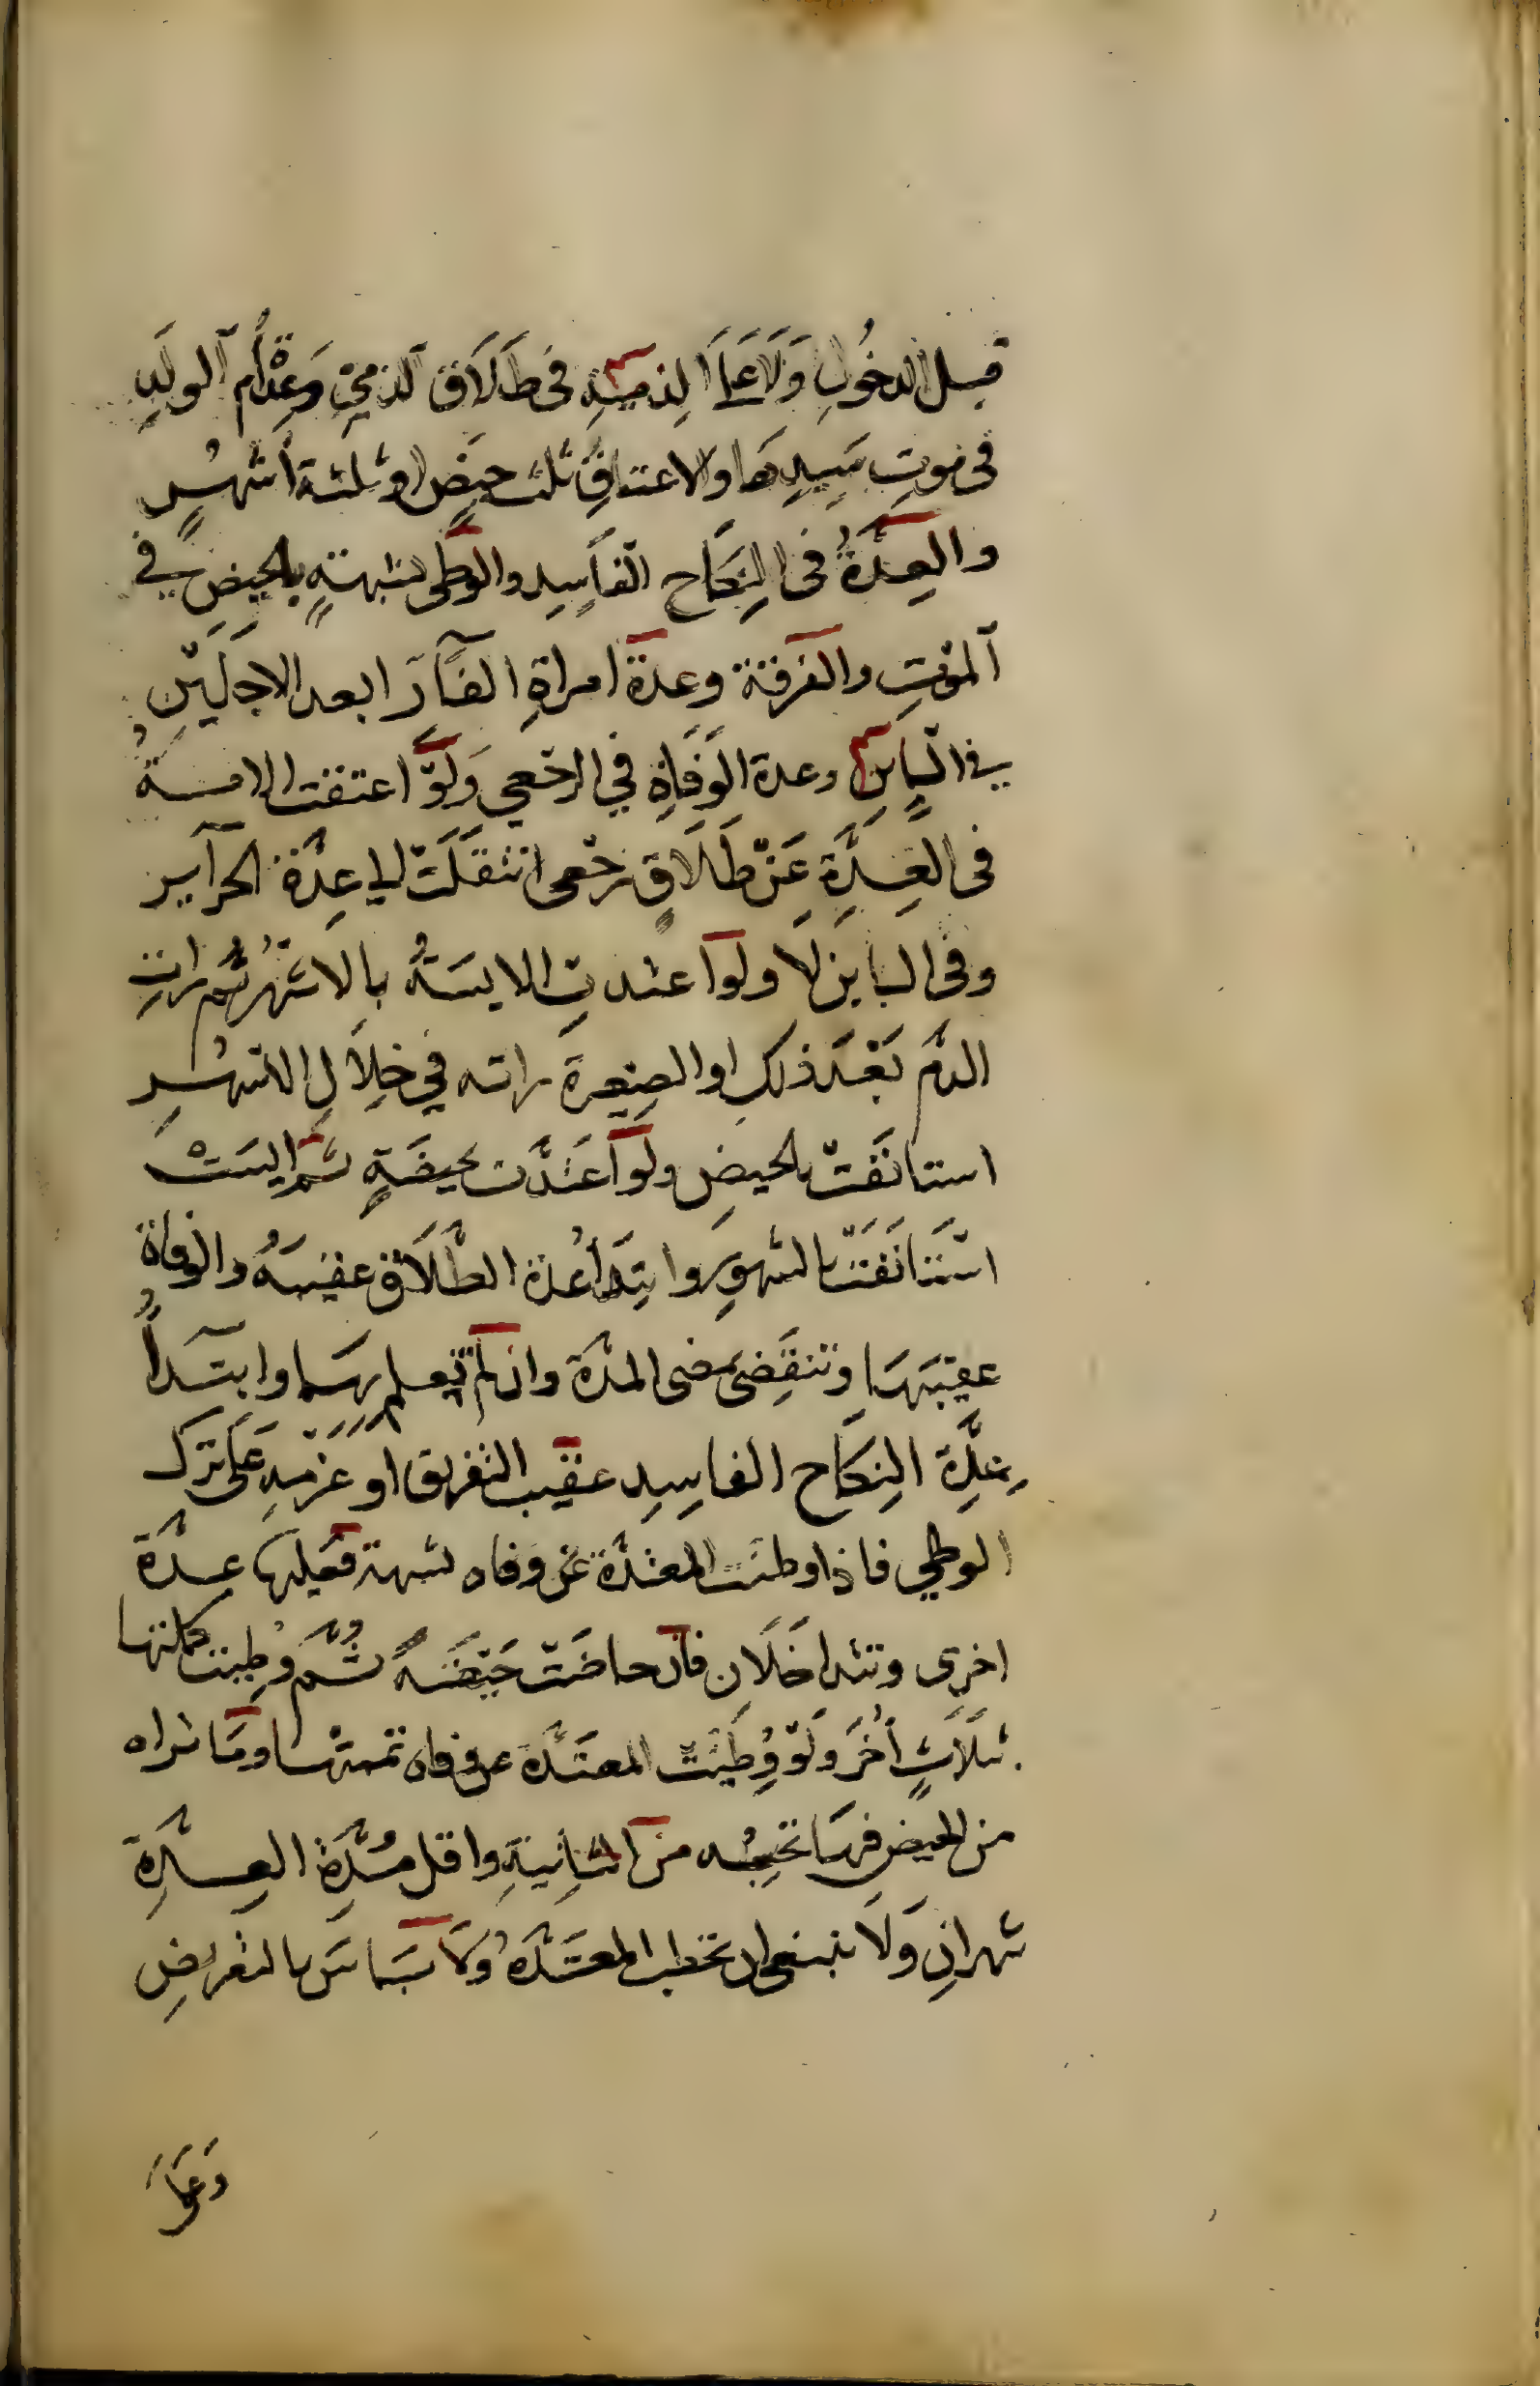 قبل الدخُولِ وَلَا عَلَى الذميّةِ فى طَلَاق الذميّ وَعِدّةُ أم الولَدِ
فى موتِ سَيِدِهَا والاعتاقِ ثلث حيَضٍ او ثلثة أشهُرٍ
والعِدَّةُ فى النِكَاح الفَاسِدِ والوطى بشبهةٍ بالحيضِ في
الموْتِ والفرقة وعدة امراةِ الفَآرّ ابعد الاجَلَيْنِ
في البَايِنِ وعدة الوَفَاةِ في الرجعي وَلَوْ اعتقت الامة
فى العِدَّةِ عَنْ طَلَاقٍ رجْعى انتقَلَتْ الى عِدّة الحرآير
وفى الباين لَا ولو اعتدت الايسَةُ بالاشهُر ثم راتِ
الدّم بَعْدَ ذلك او الصغِيرة راته في خِلَالِ الاشهُرِ
استانَفَتْ بالحيض ولو اعتَدّت بحيضَةٍ ثم ايسَتْ
اسْتَانَفَتْ بالشهورِ وابتِدَاءُ عدة الطّلَاق عقيبَهُ والوفاة
عقيبَهَا وتنقَضِى بمضى المدّة وان لم تعلم بهما وابتدآُ
عِدّةِ النِكَاح الفاسِدِ عقيب التفريق او عَزْمِهِ عَلى ترك
الوطي فاذا وطئت المعتدّة عن وفاه بشبهة فعَليها عدّة
اخرى وتتداخَلَان فان حاضَتْ حَيْضَةً ثُمّ وُطِئت كملتها
بثلَاثٍ أُخَرَ ولَوْ وُطِئَتْ المعتَدّة عن وفاه تممتها وما تراه
من الحيض فيهَا تحتسِبُه من الثانِيَةِ واقل مُدّة العِدّةِ
شهرانِ وَلَا ينبغى ان تخطب المعتَدّةُ ولا بَاس بالتعريضِ
وَعَلَى